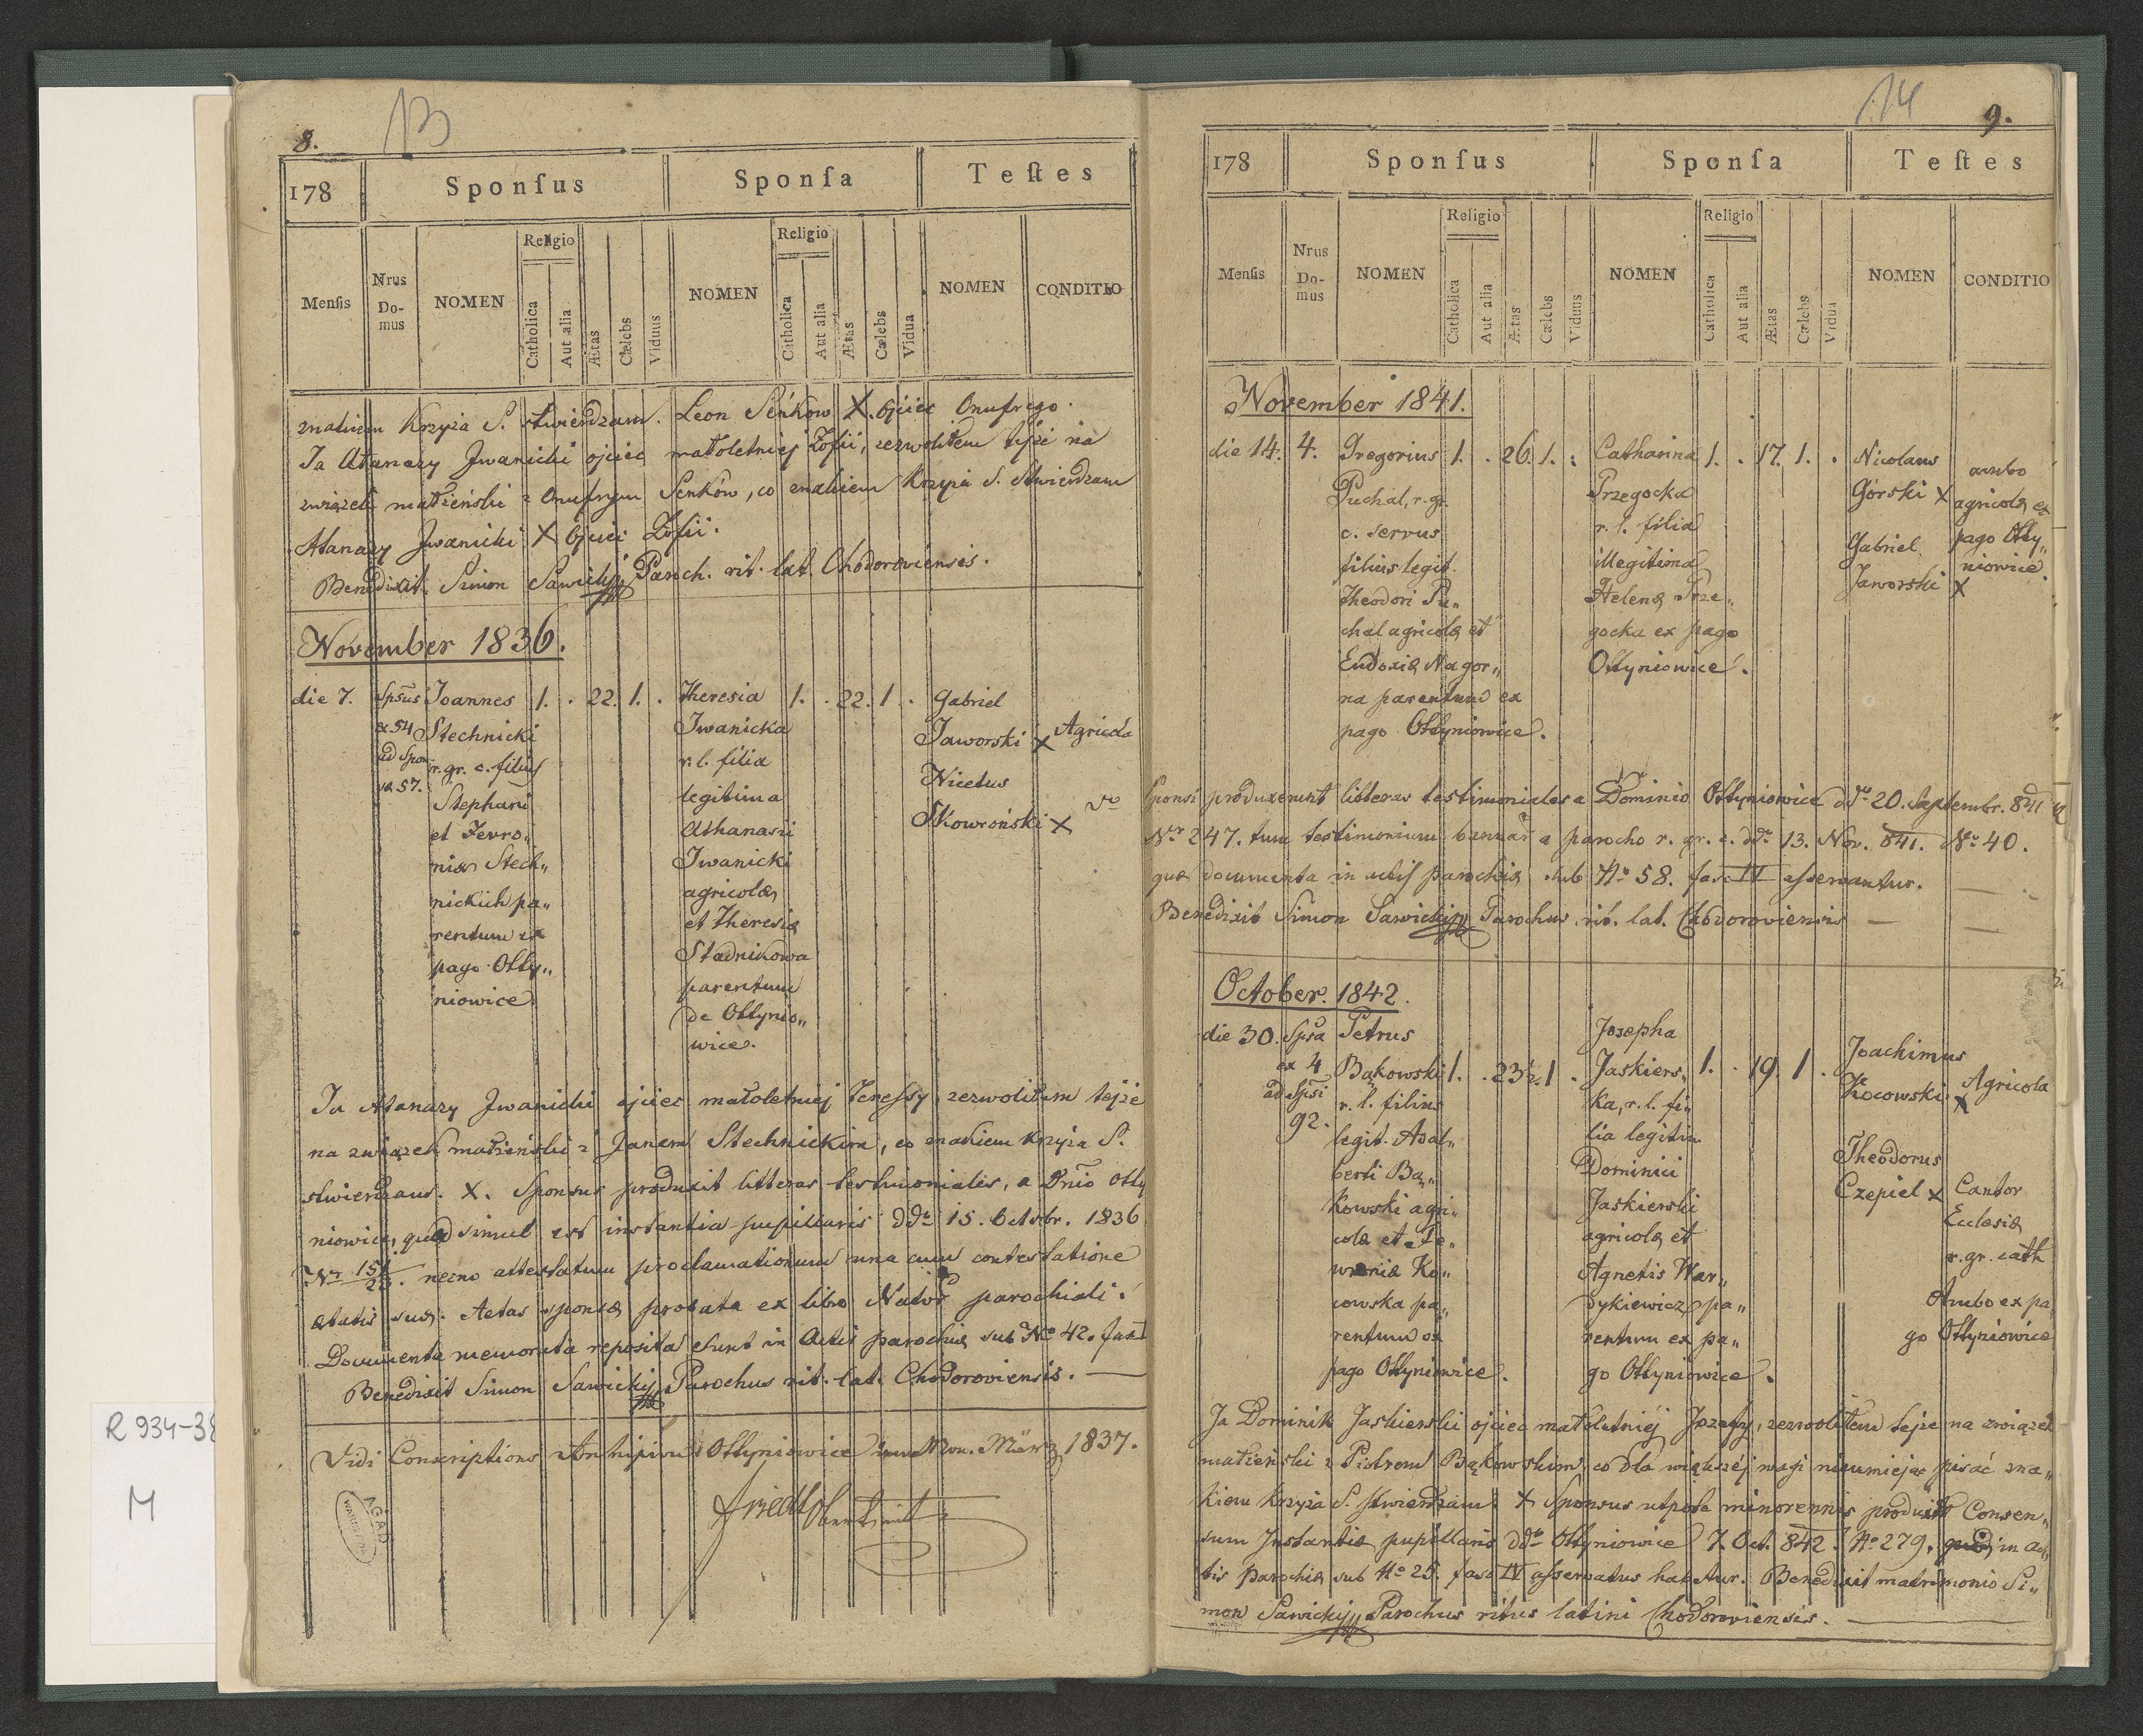 8.
13
178
Sponſus
Sponſa
Teſtes
Menſis
Nrus Do-mus
NOMEN
Religio
Catholica
Aut alia
Ætas
Cælebs
Viduus
NOMEN
Religio
Catholica
Aut alia
Ætas
Cælebs
Vidua
NOMEN
CONDITIO
znakiem Krzyża S. stwierdzam. Leon Seńkow X. Ojciec Onufrego.
Ja Atanazy Jwanicki ojciec małoletniej Zofii, zezwoliłem tejże na
związek małżeński z Onufrym Senków, co znakiem Krzyża S. stwierdzam
Atanazy Jwanicki X Ojciec Zofii.
Benedixit Simon Sawickij Paroch. rit. lat. Chodoroviensis.
November 1836.
die 7.
Spsus
ex 54
ad Spon
sa 57.
Joannes
Stechnicki
r. gr. c. filius
Stephani
et Fevro„
niæ Stech„
nickich pa„
rentum ex
pago Otty„
niowice
1. . 22. 1. .
Theresia
Iwanicka
r. l. filia
legitima
Athanasii
Iwanicki
agricolæ
et Theresiæ
Stadnikowa
parentum
de Ottynio„
wice.
1. . 22. 1 .
Gabriel
Jaworski X
Nicetus
Skowroński X
Agricola
Ja Atanazy Jwanicki ojciec małoletniej Teressy zezwoliłem tejże
na związek małżeński z Janem Stechnickim, co znakiem Krzyża S.
stwierdzam. X. Sponsus produxit litteras testimoniales, a Dnio Otty
niowice, quod simul est instantia pupillaris ddo 15. Octobr. 1836
Nr 151/ necno attestatum proclamationum una cum contestatione
ætatis suæ. Aetas sponsæ probata ex libro Nator parochiali.
Documenta memorata reposita sunt in Actis parochiæ sub No 42. fas I
Benedixit Simon Sawickij Parochus rit. lat. Chodoroviensis.
Vidi Conscriptions Ottyniowice März 1837.
A.G.A.D.
WARSZAWA
R 934-38
M
14
9.
178
Sponſus
Sponſa
Teſtes
Menſis
Nrus Do-mus
NOMEN
Religio
Catholica
Aut alia
Ætas
Cælebs
Viduus
NOMEN
Religio
Catholica
Aut alia
Ætas
Cælebs
Vidua
NOMEN
CONDITIO
November 1841.
die 14.
4.
Gregorius
Puchal, r. gr.
c. servus
filius legit.
Theodori Pu„
chal agricolæ et
Eudoxiæ Nagor„
na parentum ex
pago Ottyniowice.
1. . 26. 1. .
Catharina
Przegocka
r. l. filia
illegitima
Helenæ Prze„
gocka ex pago
Ottyniowice.
1. . 17. 1. .
Nicolaus
Górski X
Gabriel
Jaworski X
ambo
agricolæ ex
pago Otty„
niowice.
Sponsi produxerunt litteras testimoniales a Dominio Ottyniowice ddo 20. Septembr. 841
Nr 247. tum testimonium bannar a parocho r. gr. c. ddo 13. Nov. 841. No 40.
quæ documenta in actis parochiæ sub No 58. fasc IV asservantur.
Benedixit Simon Sawickij Parochus rit. lat. Chodoroviensis
October. 1842.
die 30.
Spsa
ex 4
ad Spsi
92.
Petrus
Bąkowski
r. l. filius
legit. Adal„
berti Bą„
kowski agri„
colæ et Fe„
wroniæ Ko„
cowska pa„
rentum ex
pago Ottyniowice.
1. . 23½. 1 .
Josepha
Jaskiers„
ka, r. l. fi„
lia legitim
Dominici
Jaskierski
agricolæ et
Agnetis War„
dykiewicz pa„
rentum ex pa„
go Ottyniowice.
1. . 19. 1 .
Joachimus
Kocowski X
Theodorus
Czepiel X
Agricola
Cantor
Ecclesiæ
r. gr. cath
Ambo ex pa
go Ottyniowice
Ja Dominik Jaskierski ojciec małoletniéj Jozefy, zezwoliłem tejże na związek
małżeński z Piotrem Bąkowskim, co dla większéj wagi nieumiejąc pisać zna„
kiem Krzyża S. stwierdzam X Sponsus utpote minorennis produxit Consen„
sum Instantiæ pupillaris ddo Ottyniowice 7. Oct. 842. No 279, qui in Ac„
tis parochiæ sub No 25. fasc IV asservatus habetur. Benedixit matrimonio Si„
mon Sawickij Parochus ritus latini Chodoroviensis.